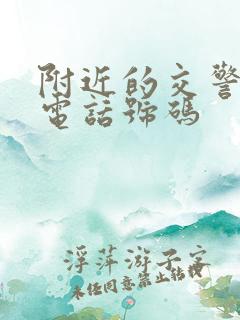 附近的交警
電話號碼
浮萍游子客
未经同意禁止转载